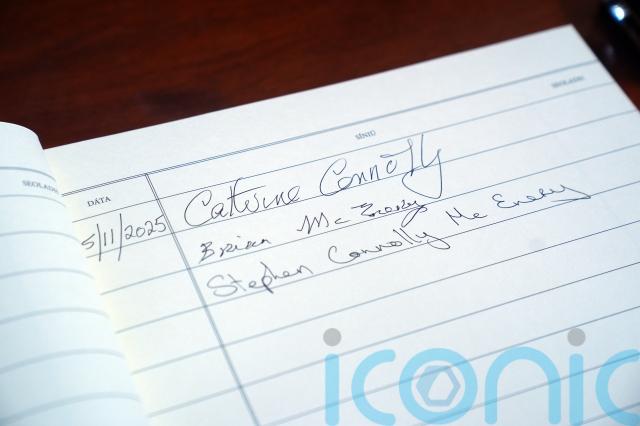 SÍNIÚ SEOLADH
SEOLADH DÁTA
5/11/2025 Catherine Connolly
Brian McEnery
Stephen Connolly Mc Enery
iconic